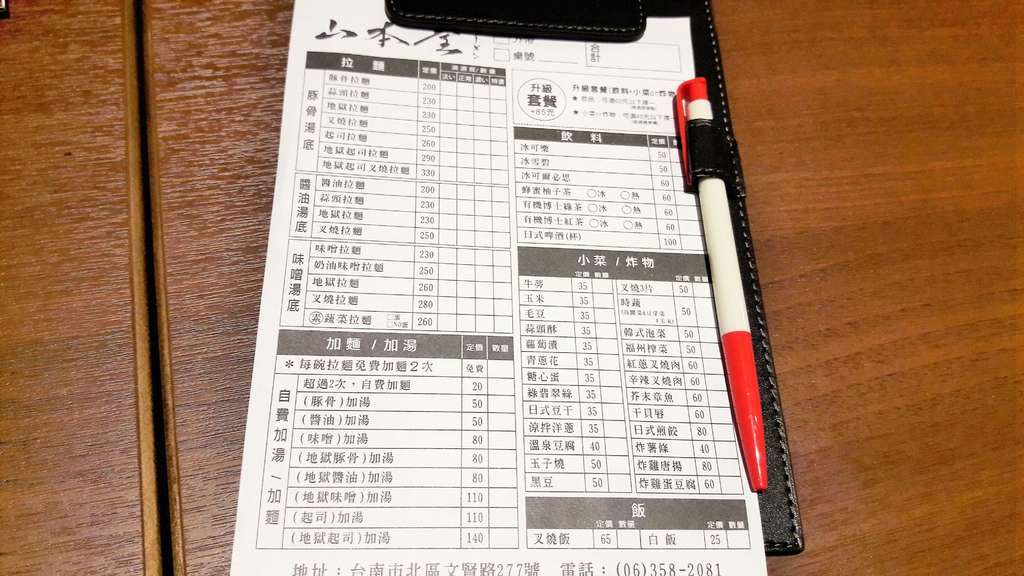 山本屋
合計
桌號
拉麵 定價 湯濃度/數量
淡い 正常 濃い 特濃
豚骨湯底
豚骨拉麵 200
蒜頭拉麵 230
地獄拉麵 230
叉燒拉麵 250
起司拉麵 260
地獄起司拉麵 290
地獄起司叉燒拉麵 330
醬油湯底
醬油拉麵 200
蒜頭拉麵 230
地獄拉麵 230
叉燒拉麵 250
味噌湯底
味噌拉麵 230
奶油味噌拉麵 250
地獄拉麵 260
叉燒拉麵 280
素 蔬菜拉麵 □蛋 □NO蛋 260
加麵 / 加湯 定價 數量
*每碗拉麵免費加麵2次 免費
自費加湯/加麵
超過2次,自費加麵 20
(豚骨)加湯 50
(醬油)加湯 50
(味噌)加湯 80
(地獄豚骨)加湯 80
(地獄醬油)加湯 80
(地獄味噌)加湯 110
(起司)加湯 110
(地獄起司)加湯 140
升級套餐+85元
升級套餐(飲料+小菜or炸物
★飲品:可選60元以下擇一
★小菜or炸物:可選40元以下擇
飲料 定價
冰可樂 50
冰雪碧 50
冰可爾必思 60
蜂蜜柚子茶 ○冰 ○熱 60
有機博士綠茶 ○冰 ○熱 60
有機博士紅茶 ○冰 ○熱 60
日式啤酒(杯) 100
小菜 / 炸物
定價 數量 定價 數量
牛蒡 35
玉米 35
毛豆 35
蒜頭酥 35
蘿蔔漬 35
青蔥花 35
糖心蛋 35
綠翡翠絲 35
日式豆干 35
涼拌洋蔥 35
溫泉豆腐 40
玉子燒 50
黑豆 50
叉燒3片 50
時蔬 50
韓式泡菜 50
福州榨菜 50
紅蔥叉燒肉 60
辛辣叉燒肉 60
芥末章魚 60
干貝唇 60
日式煎餃 80
炸薯條 40
炸雞唐揚 80
炸雞蛋豆腐 60
飯
定價 數量 定價 數量
叉燒飯 65 白飯 25
地址:台南市北區文賢路277號 電話:(06)358-2081